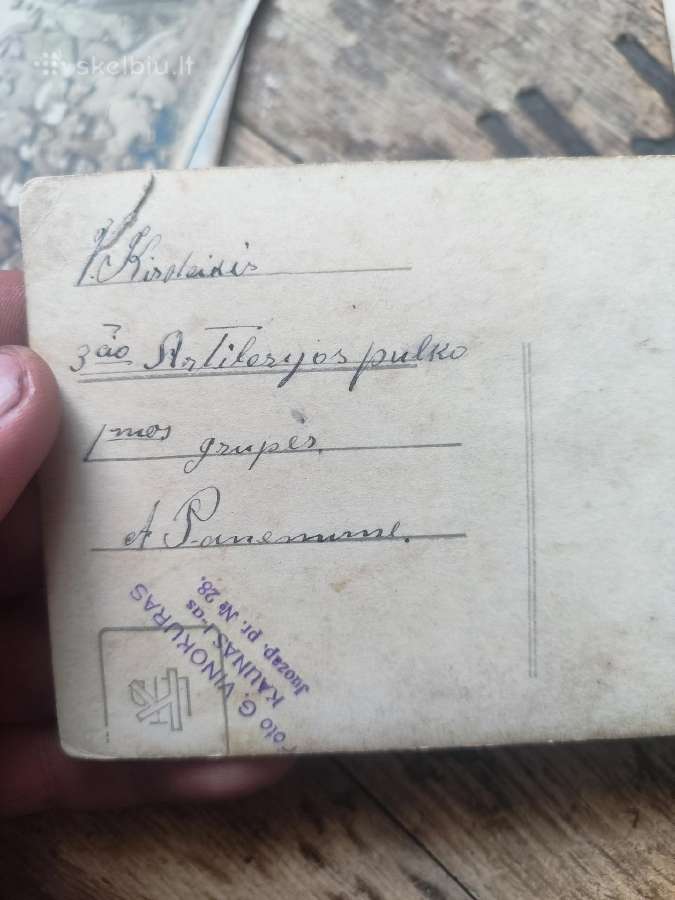 skelbiu.lt
V. Kisteidis
3čio Artilerijos pulko
1mos grupės.
A Panemune.
Foto G. VINOKURAS
KAUNAS I-as
Juozap. pr. № 28.